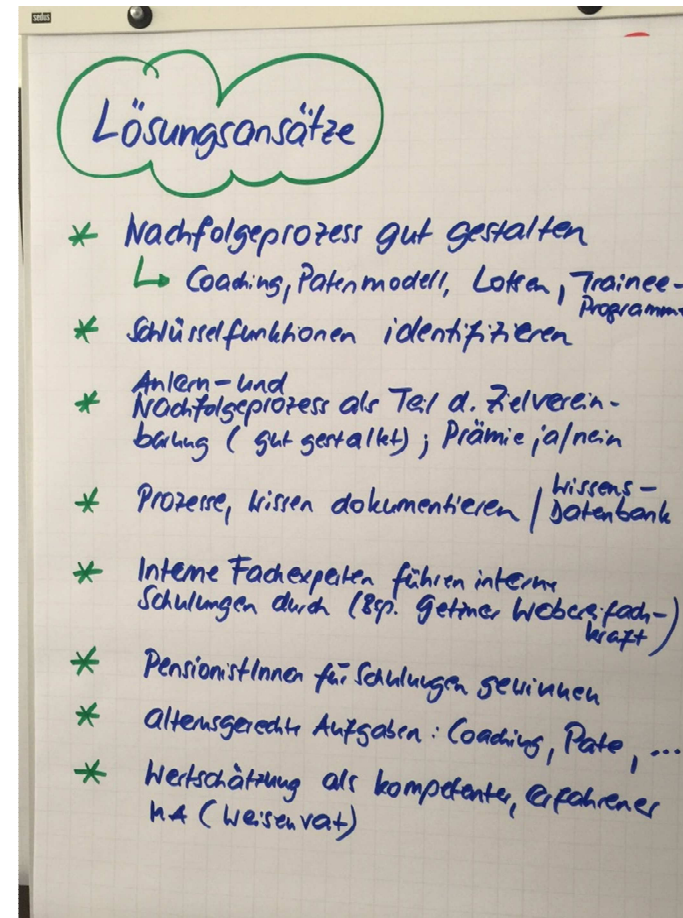 sedus
Lösungsansätze
* Nachfolgeprozess gut gestalten
↳ Coaching, Patenmodell, Lotsen, Trainee-
Programm
* Schlüsselfunktionen identifizieren
* Anlern- und
Nachfolgeprozess als Teil d. Zielverein-
barung (gut gestaltet); Prämie ja/nein
* Prozesse, Wissen dokumentieren / Wissens-
Datenbank
* Interne Fachexperten führen interne
Schulungen durch (Bsp. Getzner Weberei fach-
kraft)
* PensionistInnen für Schulungen gewinnen
* alternsgerechte Aufgaben: Coaching, Pate, ...
* Wertschätzung als kompetenter, erfahrener
MA (Weisenrat)